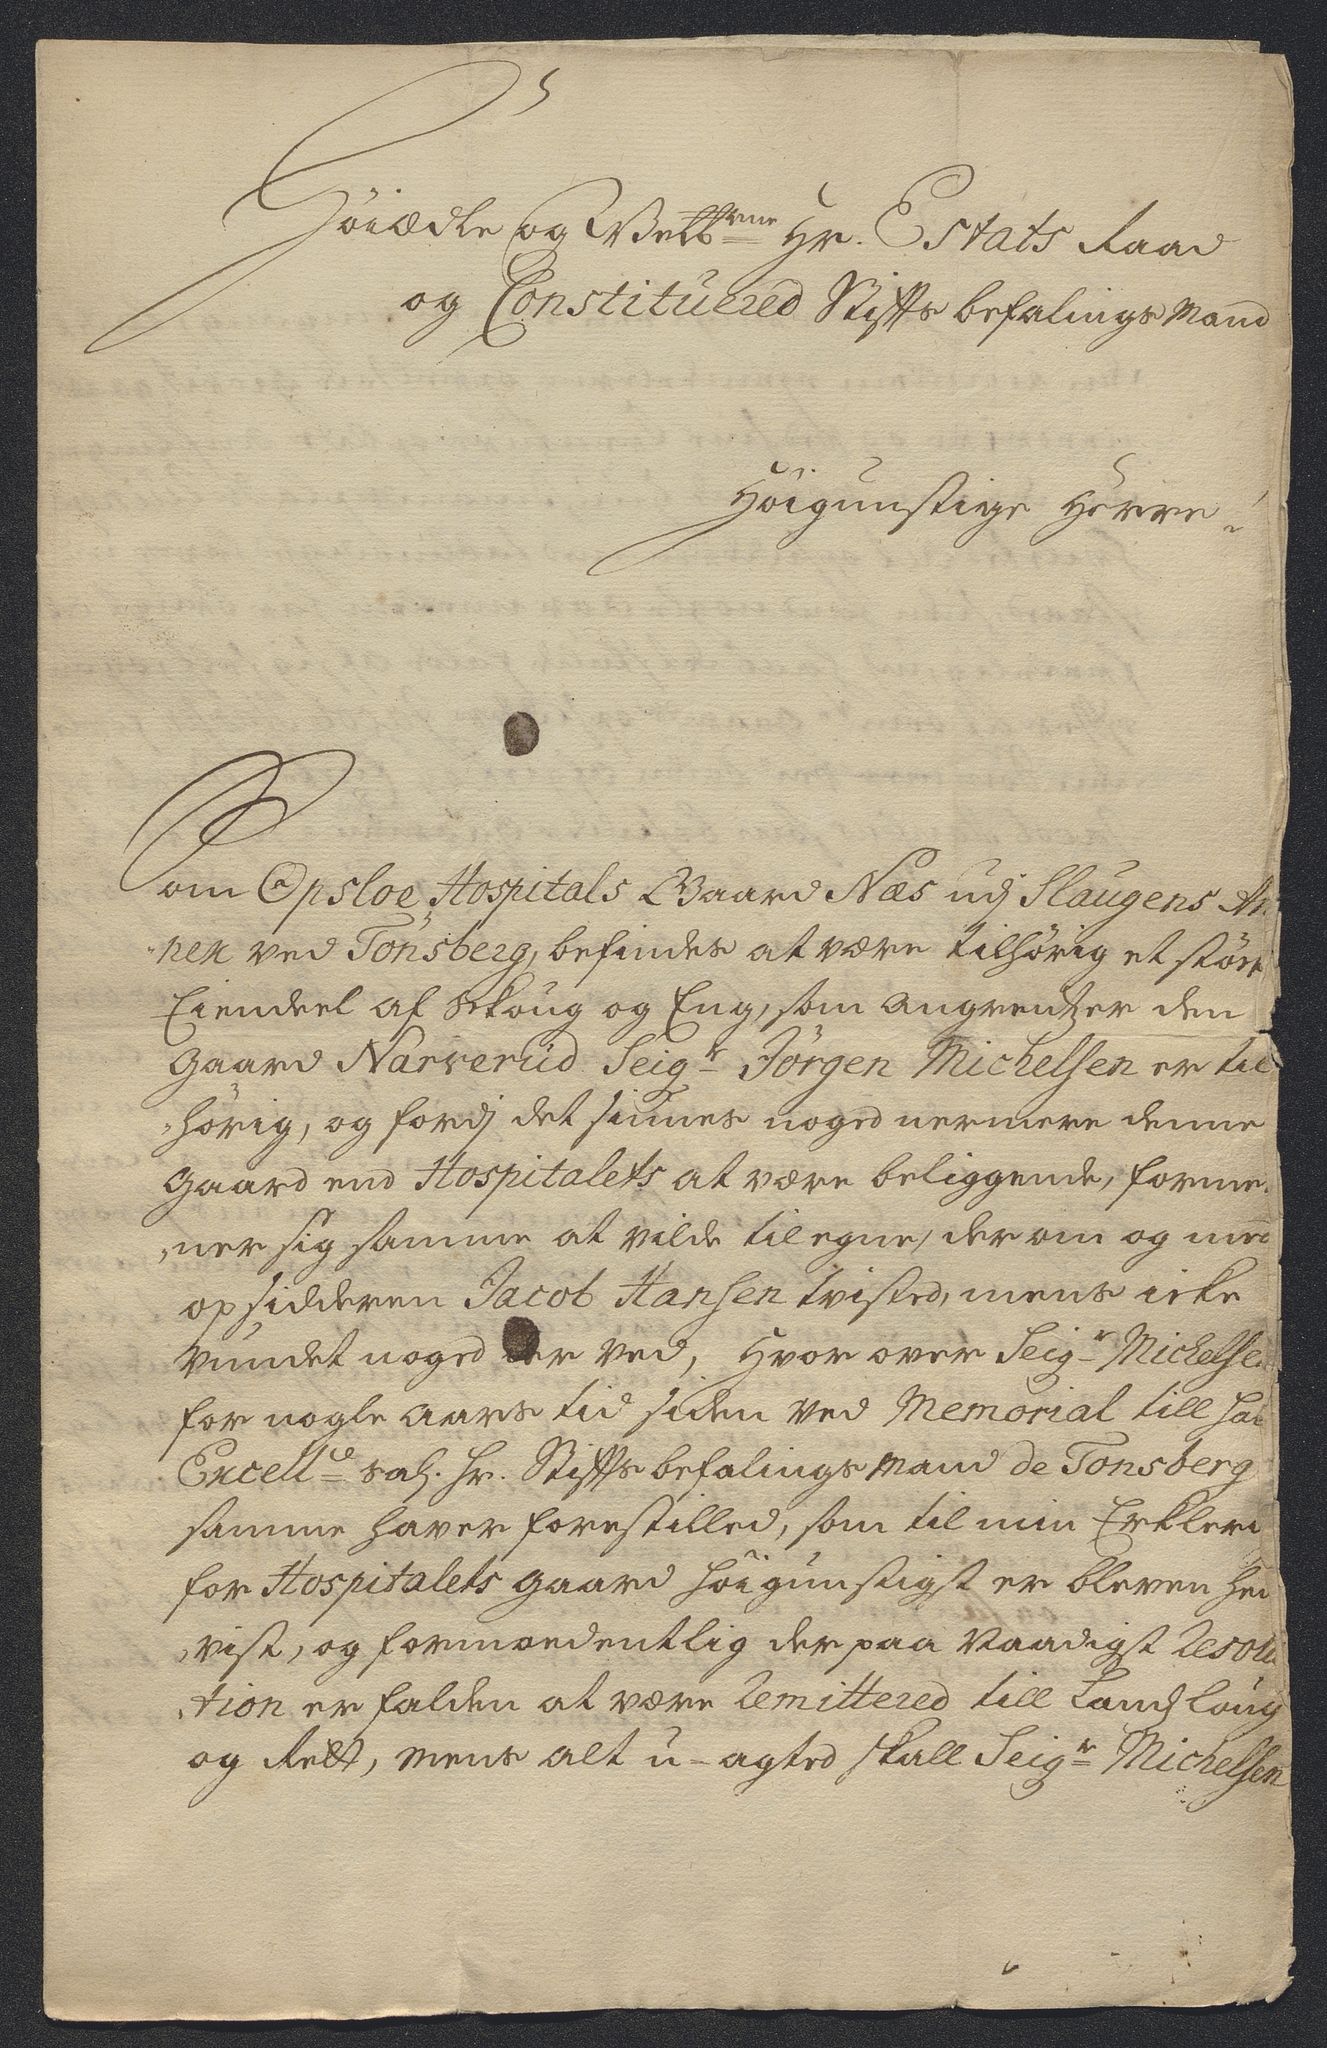 Høiædle og Velb:rne Hr. Estats Raad
og Constituered Stiffts befalings Mand
Høigunstige Herre
Som Opsloe Hospitals Gaard Næs udj Slaugens An-
nex ved Tönsberg, befindes at være tilhörig et störe
Eiendeel af Skoug og Eng, som angrentzer den
Gaard Narverüd Seigr Jörgen Michelsen er til
hörig, og fordj det siünes noged nermere denne
Gaard end Hospitalets at være beliggende, forme-
ner sig samme at vilde tilegne, der om og med
opsidderen Jacob Hansen tvisted, mens icke
vundet noged der ved, Hvor over Seigr Michelsen
for nogle Aars tid siden ved Memorial till hans
Excelld sal. Hr. Stiffts befalings Mand de Tonsberg
samme haver forestilled, som til min Erklering
for Hospitalets gaard höigunstigst er bleven hen
vist, og formoedentlig der paa Naadigst Resolu
tion er falden at være Remittered till Landsloug
og Rett, mens alt u-agted skall Seigr Michelsen